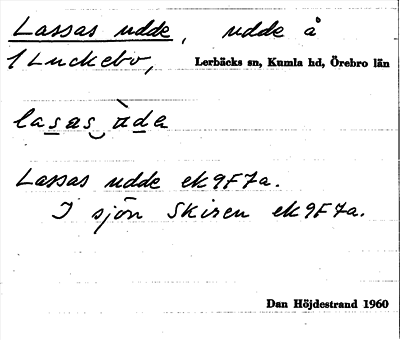 Lassas udde, udde å
1 Luckebo, Lerbäcks sn, Kumla hd, Örebro län
lasas ùdɐ
Lassas udde ek 9F7a.
I sjön Skiren ek 9F7a.
Dan Höjdestrand 1960